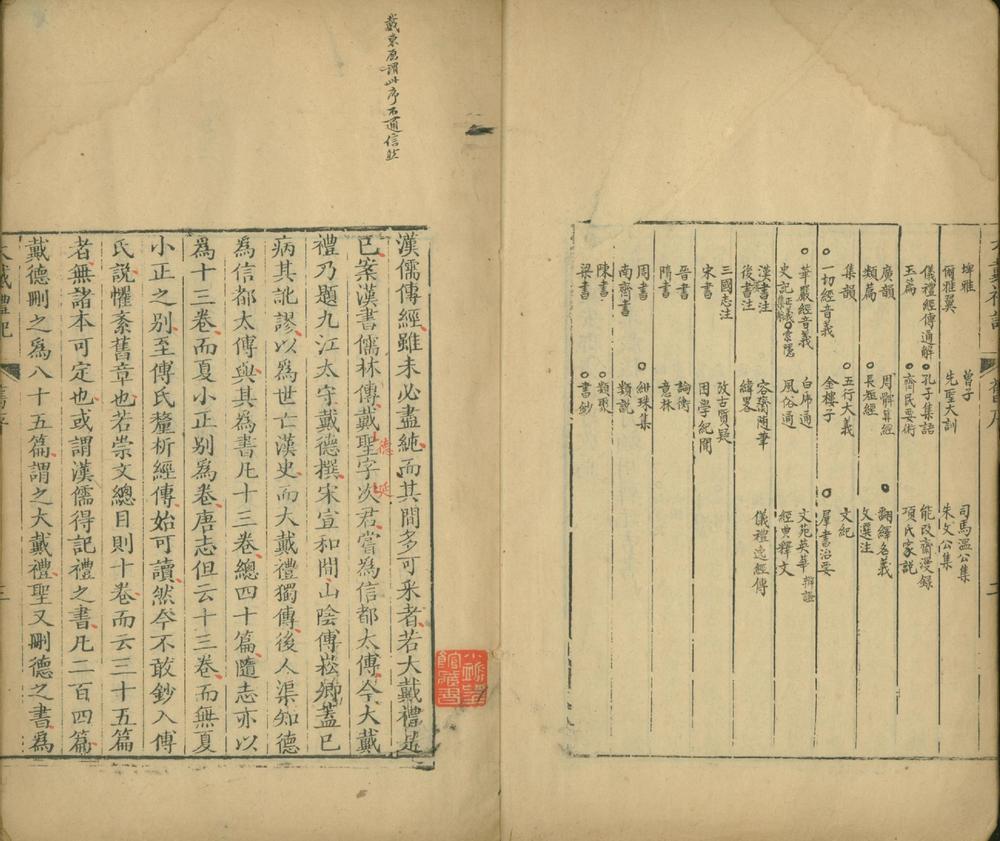 埤雅 曾子 司馬溫公集
爾雅翼 先聖大訓 朱文公集
儀禮經傳通解 孔子集語 能改齋漫錄
玉篇 齊民要術 項氏家說
廣韻 周髀算經 翻繹名義
類篇 長短經 文選注
集韻 五行大義 文紀
一切經音義 金樓子 羣書治要
華嚴經音義 白虎通 文苑英華辨證
史記正義集解索隱 風俗通 經典釋文
漢書注 容齋随筆 儀禮逸經傳
後書注 緯畧
三國志注 攷古質疑
宋書 困學紀聞
晉書 論衡
隋書 意林
周書 紺珠集
南齊書 類說
陳書 類聚
梁書 書鈔
戴東原謂此序不通信然
漢儒傳經雖未必盡純而其間多可釆者若大戴禮是
已案漢書儒林傳戴聖字次君嘗為信都太傅今大戴
德
延
禮乃題九江太守戴德撰宋宣和閒山陰傅崧卿蓋已
病其訛謬以為世亡漢史而大戴禮獨傳後人渠知德
為信都太傅與其為書凡十三卷總四十篇隨志亦以
爲十三卷而夏小正别爲卷唐志但云十三卷而無夏
小正之别至傅氏釐析經傳始可讀然今不敢鈔入傅
氏説懼紊舊章也若崇文總目則十卷而云三十五篇
者無諸本可定也或謂漢儒得記禮之書凡二百四篇
戴德刪之為八十五篇謂之大戴禮聖又刪德之書為
大戴禮記 舊序 三